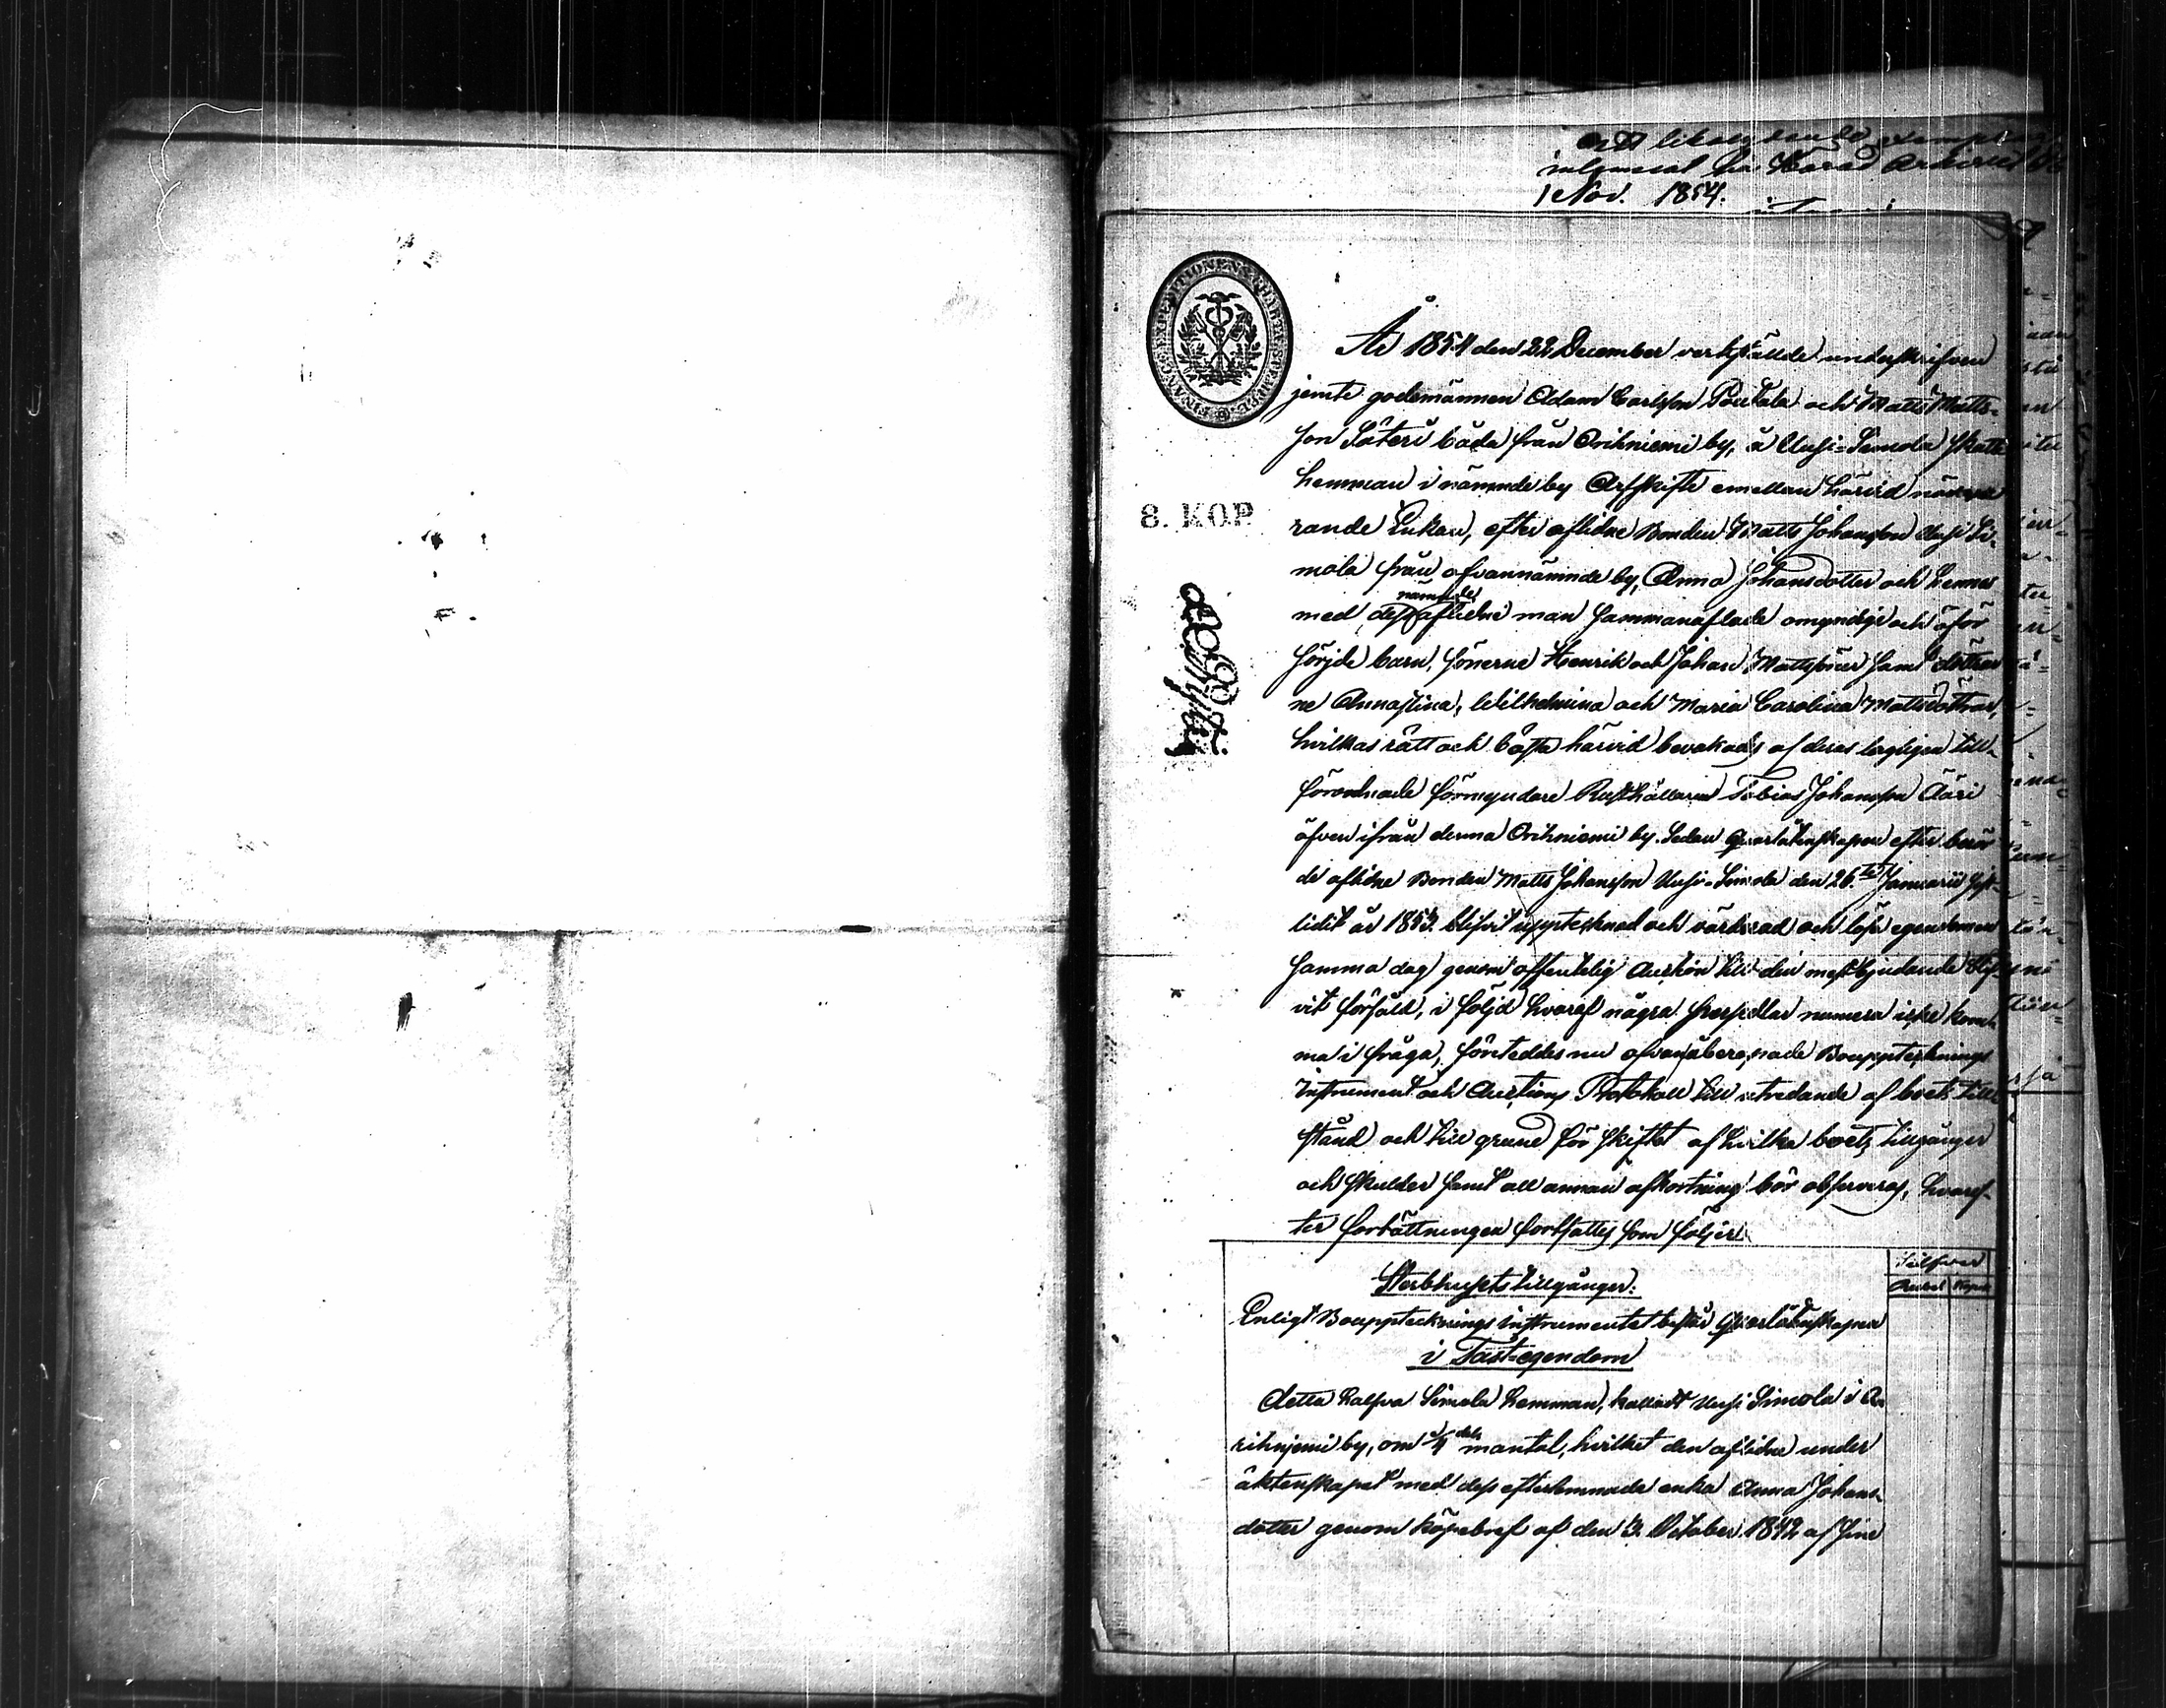 ett likalydande exemplar
inlemnad
1 Nov. 1854.
FINANCE EXPEDITIONENS CHARTÆ STEMPEL
8. KOP.
År 1854 den 22 December verkställde underskrifven
jemte godemännen Adam Carlsson Pouttala och Matts Matts-
son Säteri båda från Orihniemi by, å Uusi-Simola skatte
hemman i nämnde by Arfskifte emellan härvid närva
rande Enkan, efter aflidne Bonden Matts Johansson Uusi Si-
mola från ofvannämnde by, Anna Johansdotter och hennes
med dess nämnde aflidne man sammanaflade omyndige och oför
sörjde barn, sönerne Henrik och Johan Mattssöner samt döttrar
ne Annastina, Wilhelmina och Maria Carolina Mattsdöttrar,
hvilkas rätt och bästa härvid bevakades af deras lagligen till-
förordnade förmyndare Rusthållaren Tobias Johansson Ääri
äfven ifrån denna Orihniemi by. Sedan Qvarlåtenskapen efter berör
de aflidne Bonden Matts Johansson Uusi-Simola den 26.te Januarii sist-
lidit år 1853 blifvit uppteknad och värderad och lösa egendomen
samma dag genom offentelig Auction till den mestbjudande blif
vit försåld, i följd hvaraf några persedlar numera icke kom-
ma i fråga, företeddes nu ofvanåberopade Boupptecknings
Instrument och Auctions Protokoll till utredande af boets till
stånd och till grund för skiftet af hvilka boets tillgångar
och skulder samt all annan afkortning bör observeras, hvaref-
ter förrättningen fortsattes som följer.
Silfver
Rubel Kopek
Sterbhusets tillgångar:
Enligt Bouppteckningsinstrumentet består Qvarlåtenskapen
i Fast-egendom
Detta halfva Simola hemman, kalladt Uusi Simola i O-
rihnjemi by, om 1/4 dels mantal, hvilket den aflidne under
äktenskapet med dess efterlemnade enka Anna Johans-
dotter genom köpebref af den 3. October 1842 af sine